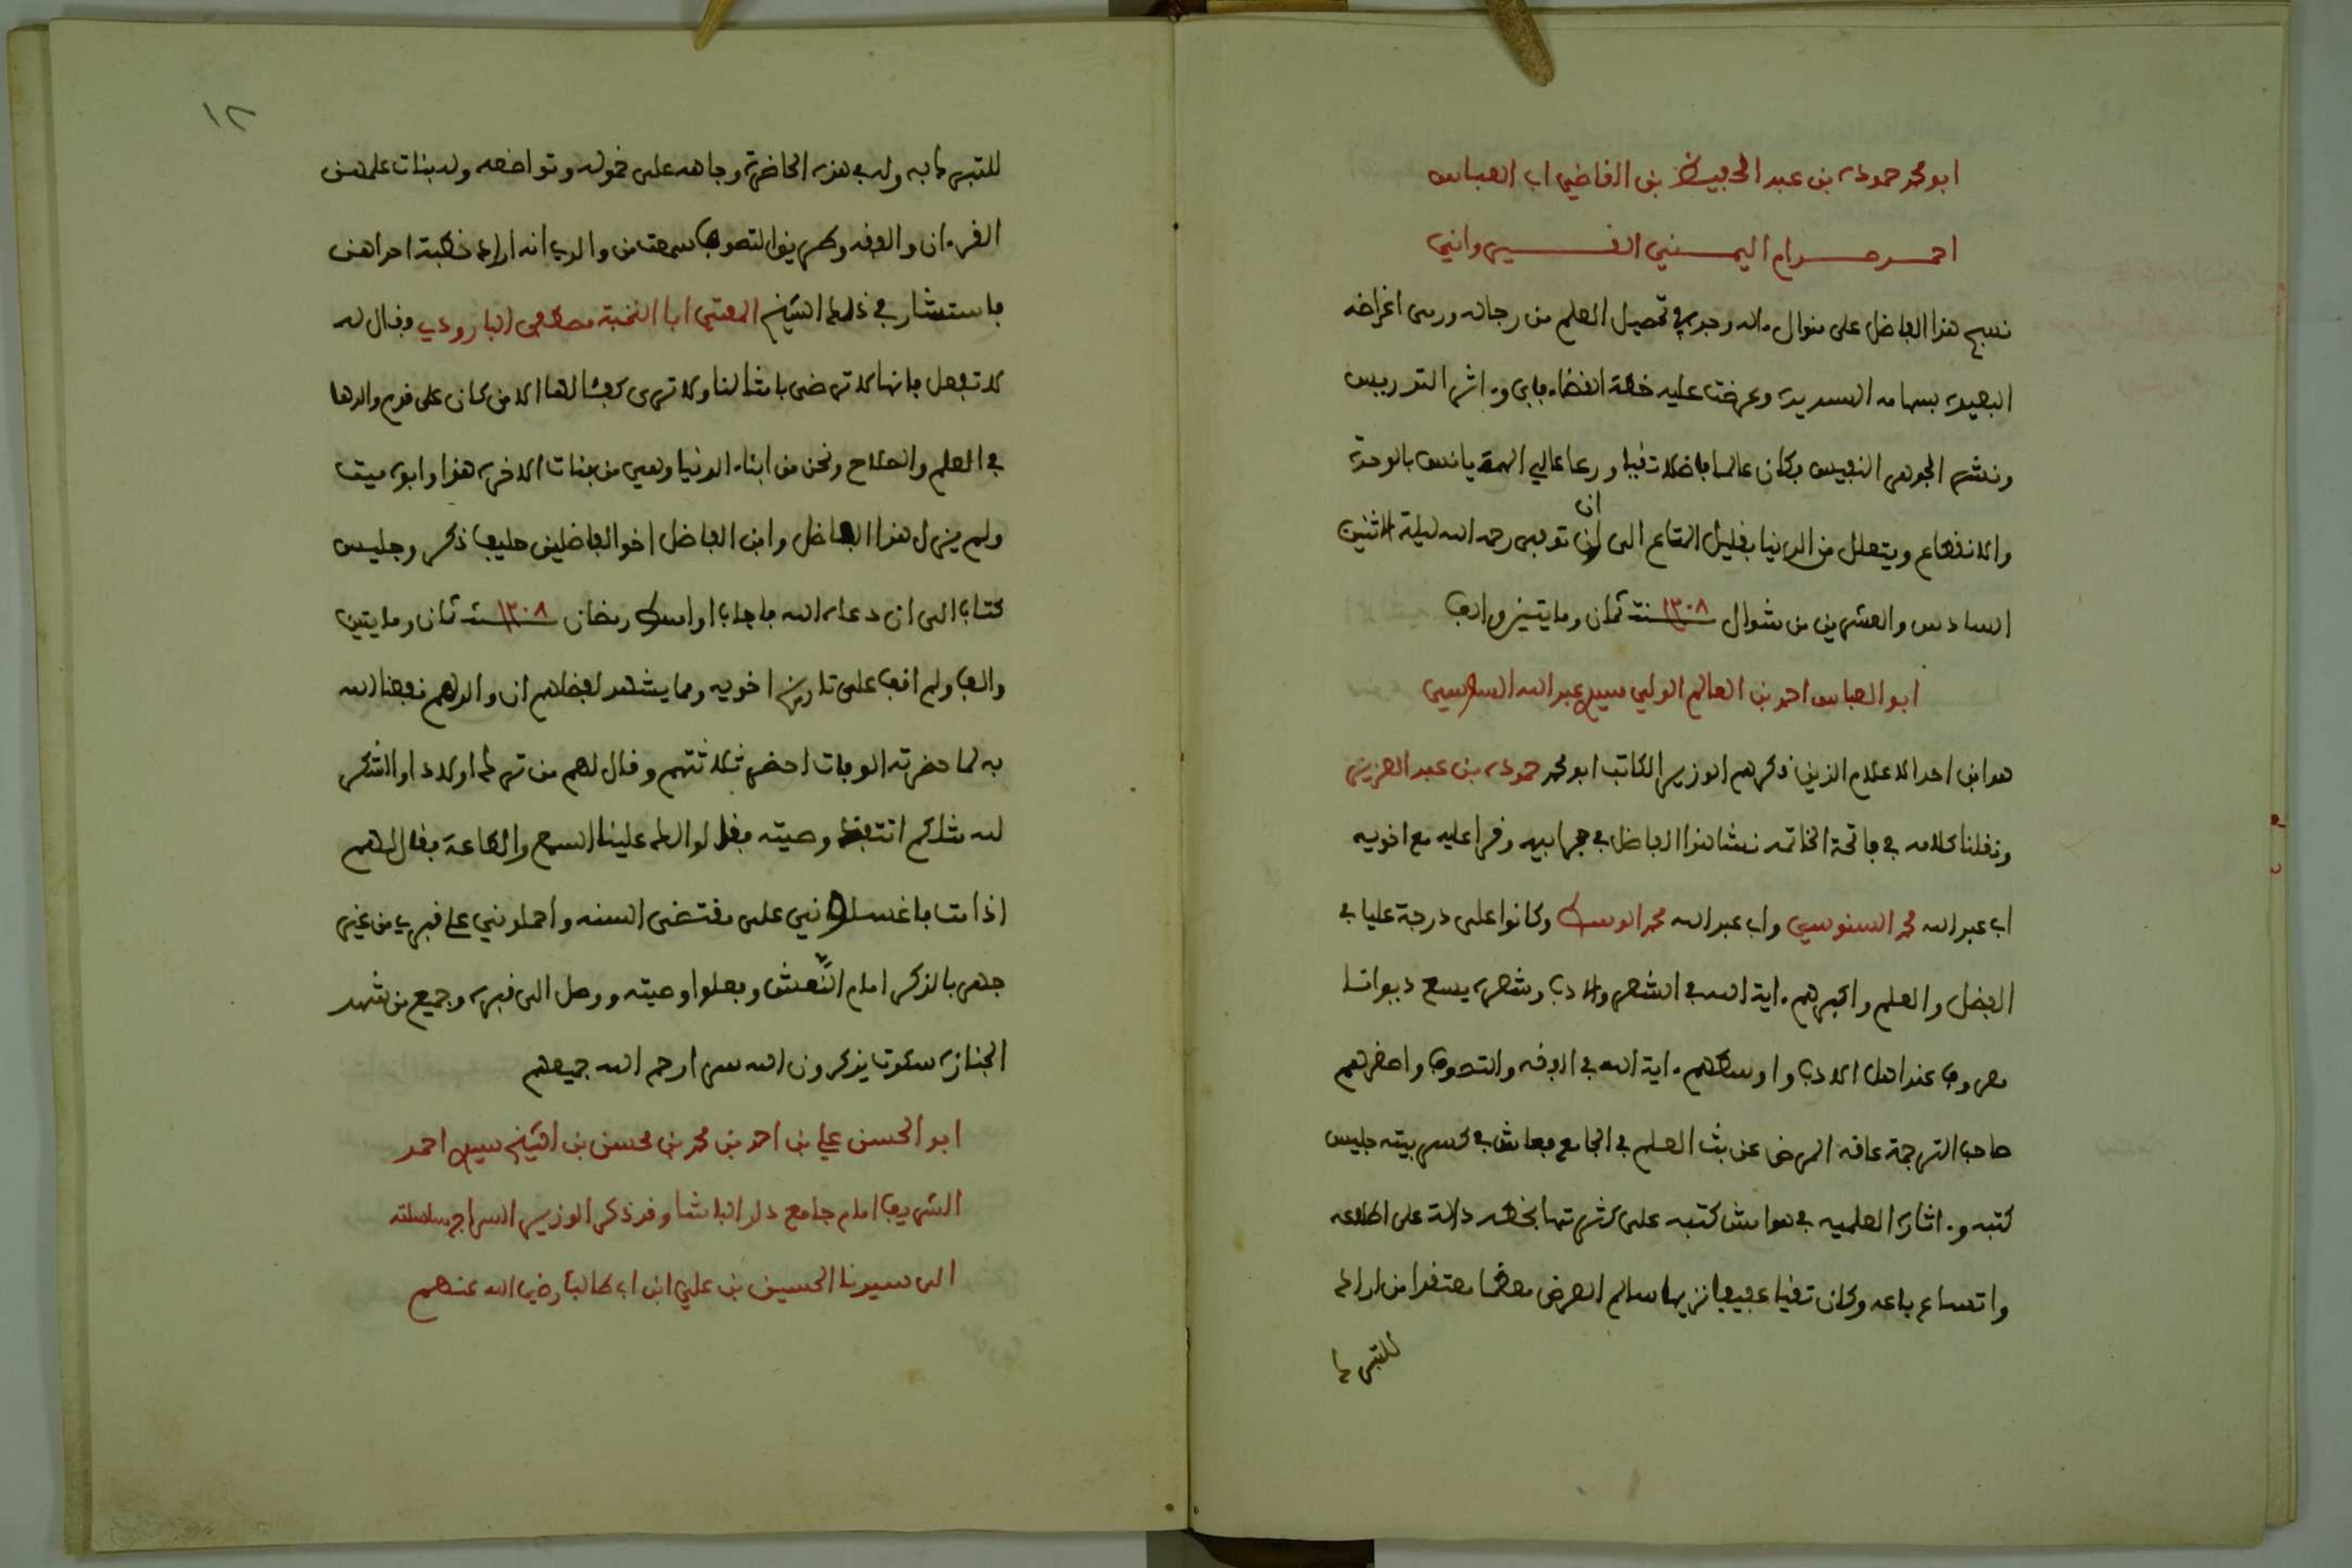 ابو محمد حمودة بن عبد الحفيظ بن القاضي ابي العباس
احمد حرام اليمني القيرواني
نسج هذا الفاضل على منوال ءاله وجد في تحصيل العلم من رجاله ورمى اغراضه
البعيدة بسهامه السديدة وعرضت عليه خطة القضاء فابى وءاثر التدريس
ونشر الجوهر النفيس وكان عالما فاضلا تقيا ورعا عالي الهمة يانس بالوحدة
والانقطاع ويتعلل من الدنيا بقليل المتاع الى ان ان توفي رحمه الله ليلة الاثنين
السادس والعشرين من شوال سنة ١٢٠٨ ثمان ومايتين والف
ابو العباس احمد بن العالم الولي سيدي عبد الله السوسي
هو ابن احد الاعلام الذين ذكرهم الوزير الكاتب ابو محمد حمودة بن عبد العزيز
ونقلنا كلامه في فاتحة الخاتمه نشا هذا الفاضل في حجر ابيه وقرا عليه مع اخويه
ابي عبد الله محمد السنوسي وابي عبد الله محمد الوسط وكانوا على درجة عليا في
الفضل والعلم واكبرهم ءاية الله في الشعر والادب وشعره يسع ديوانا
معروف عند اهل الادب واوسطهم ءاية الله في الفقه والتصوف واصغرهم
صاحب الترجمة عاقه المرض عن بث العلم في الجامع فعاش في كسر بيته جليس
كتبه وءاثاره العلميه في هوامش كتبه على كثرتها بخطه دالة على اطلاعه
واتساع باعه وكان تقيا عفيفا نزيها سالم العرض معظما معتقدا من اراد
للتبرك
١٢
للتبرك به وله في هذه الحاضرة وجاهه على خموله وتواضعه وله بنات علمهن
القرءان والفقه وطريق التصوف سمعت من والدي انه اراد خطبة احداهن
فاستشار في ذلك الشيخ المفتي ابا النخبة مصطفى البارودي فقال له
لا تفعل فانها لا ترضى بامثالنا ولا ترى كفئا لها الا من كان على قدم والدها
في العلم والصلاح ونحن من ابناء الدنيا وهي من بنات الاخرة هذا وابوه ميت
ولم يزل هذا الفاضل وابن الفاضل اخو الفاضلين حليف ذكر وجليس
كتاب الى ان دعاه الله فاجاب اواسط رمضان سنة ١٢٠٨ ثمان ومايتين
والف ولم اقف على تاريخ اخويه ومما يشهد لفضلهم ان والدهم نفعنا الله
به لما حضرته الوفات احضر ثلاثتهم وقال لهم من ترك اولادا والشكر
لله مثلكم تنفذ وصيته فقالوا لك علينا السمع والطاعة فقال لهم
اذا مت فاغسلونني على مقتضى السنه واحملوني على قبري من غير
جهر بالذكر امام النعش وفعلوا وصيته ووصل الى قبره وجميع من شهد
الجنازة سكوت يذكرون الله سرا رحم الله جميعهم
ابو الحسن علي بن احمد بن محمد بن محسن بن الشيخ سيدي احمد
الشريف امام جامع دار الباشا وقد ذكر الوزير السراج سلسلته
الى سيدنا الحسين بن علي ابن ابي طالب رضي الله عنهم